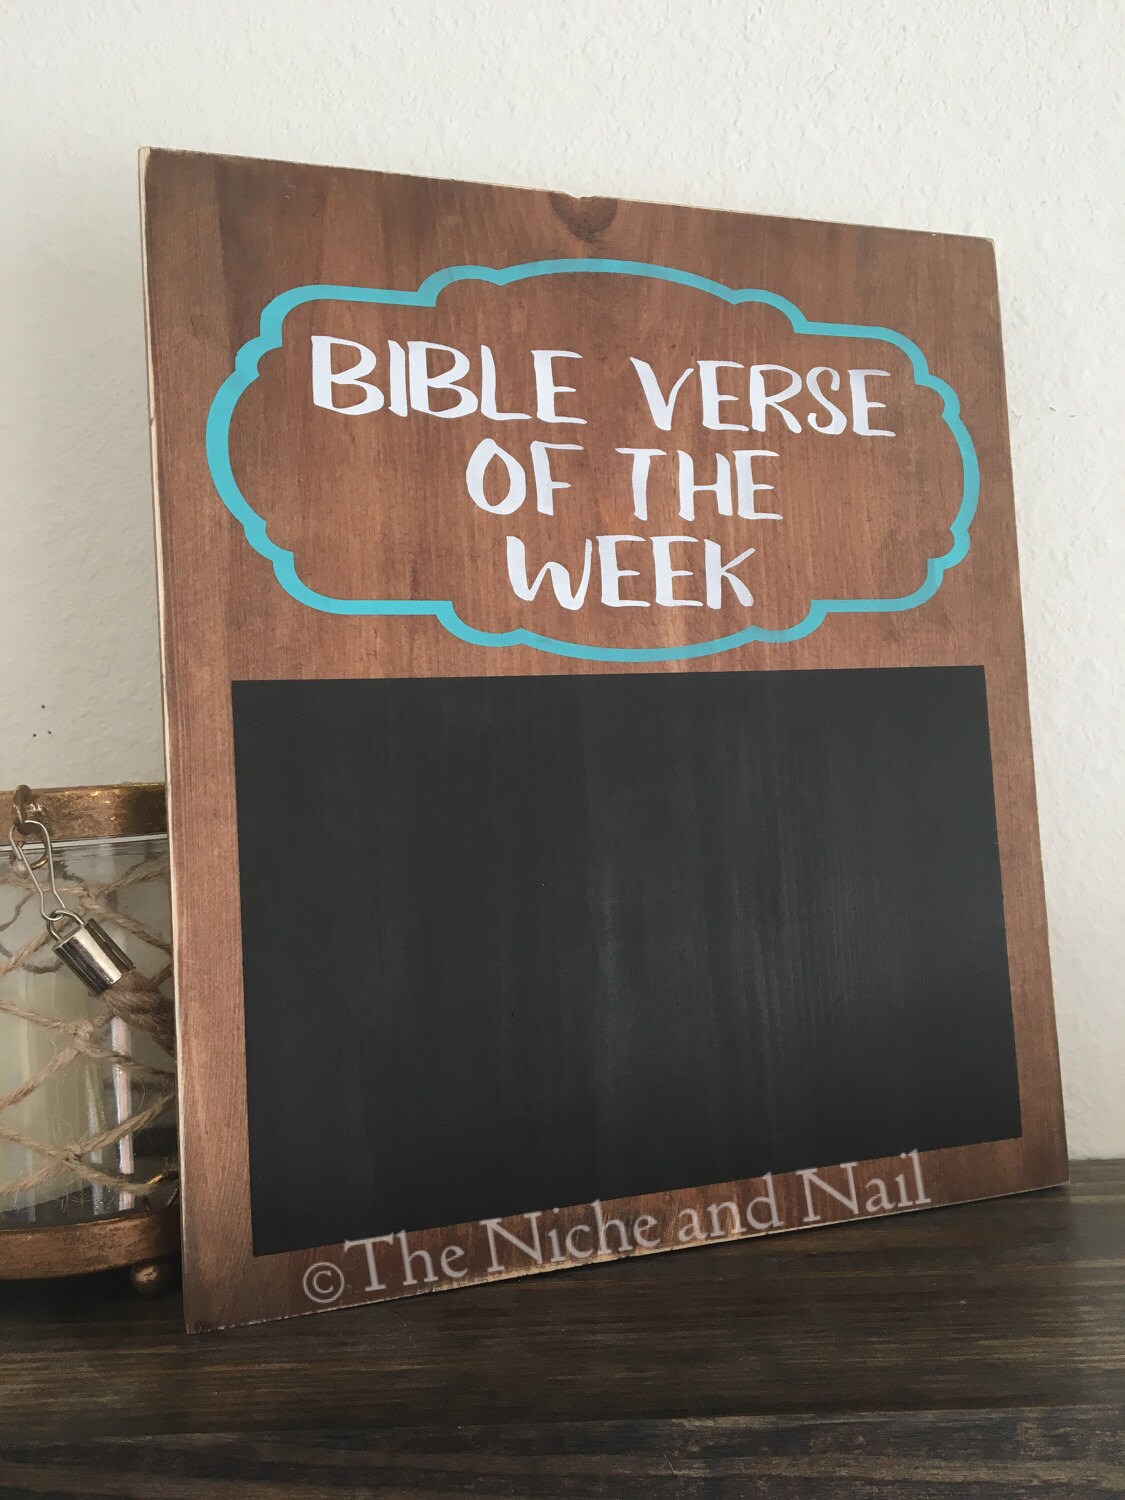 BIBLE VERSE
OF THE
WEEK
© The Niche and Nail